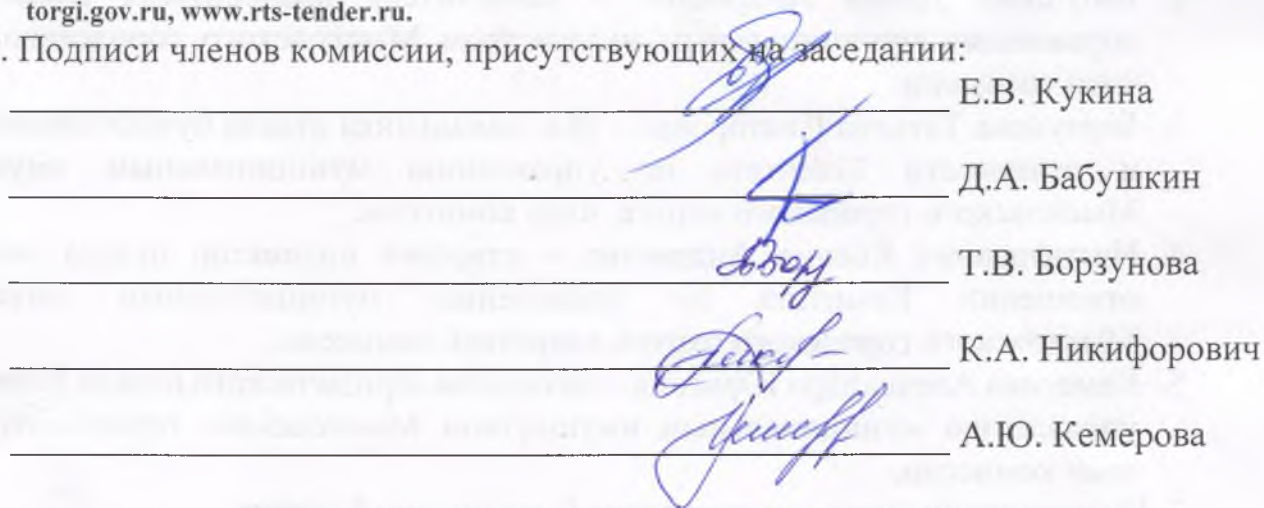 torgi.gov.ru, www.rts-tender.ru.
. Подписи членов комиссии, присутствующих на заседании:
Е.В. Кукина
Д.А. Бабушкин
Т.В. Борзунова
К.А. Никифорович
А.Ю. Кемерова